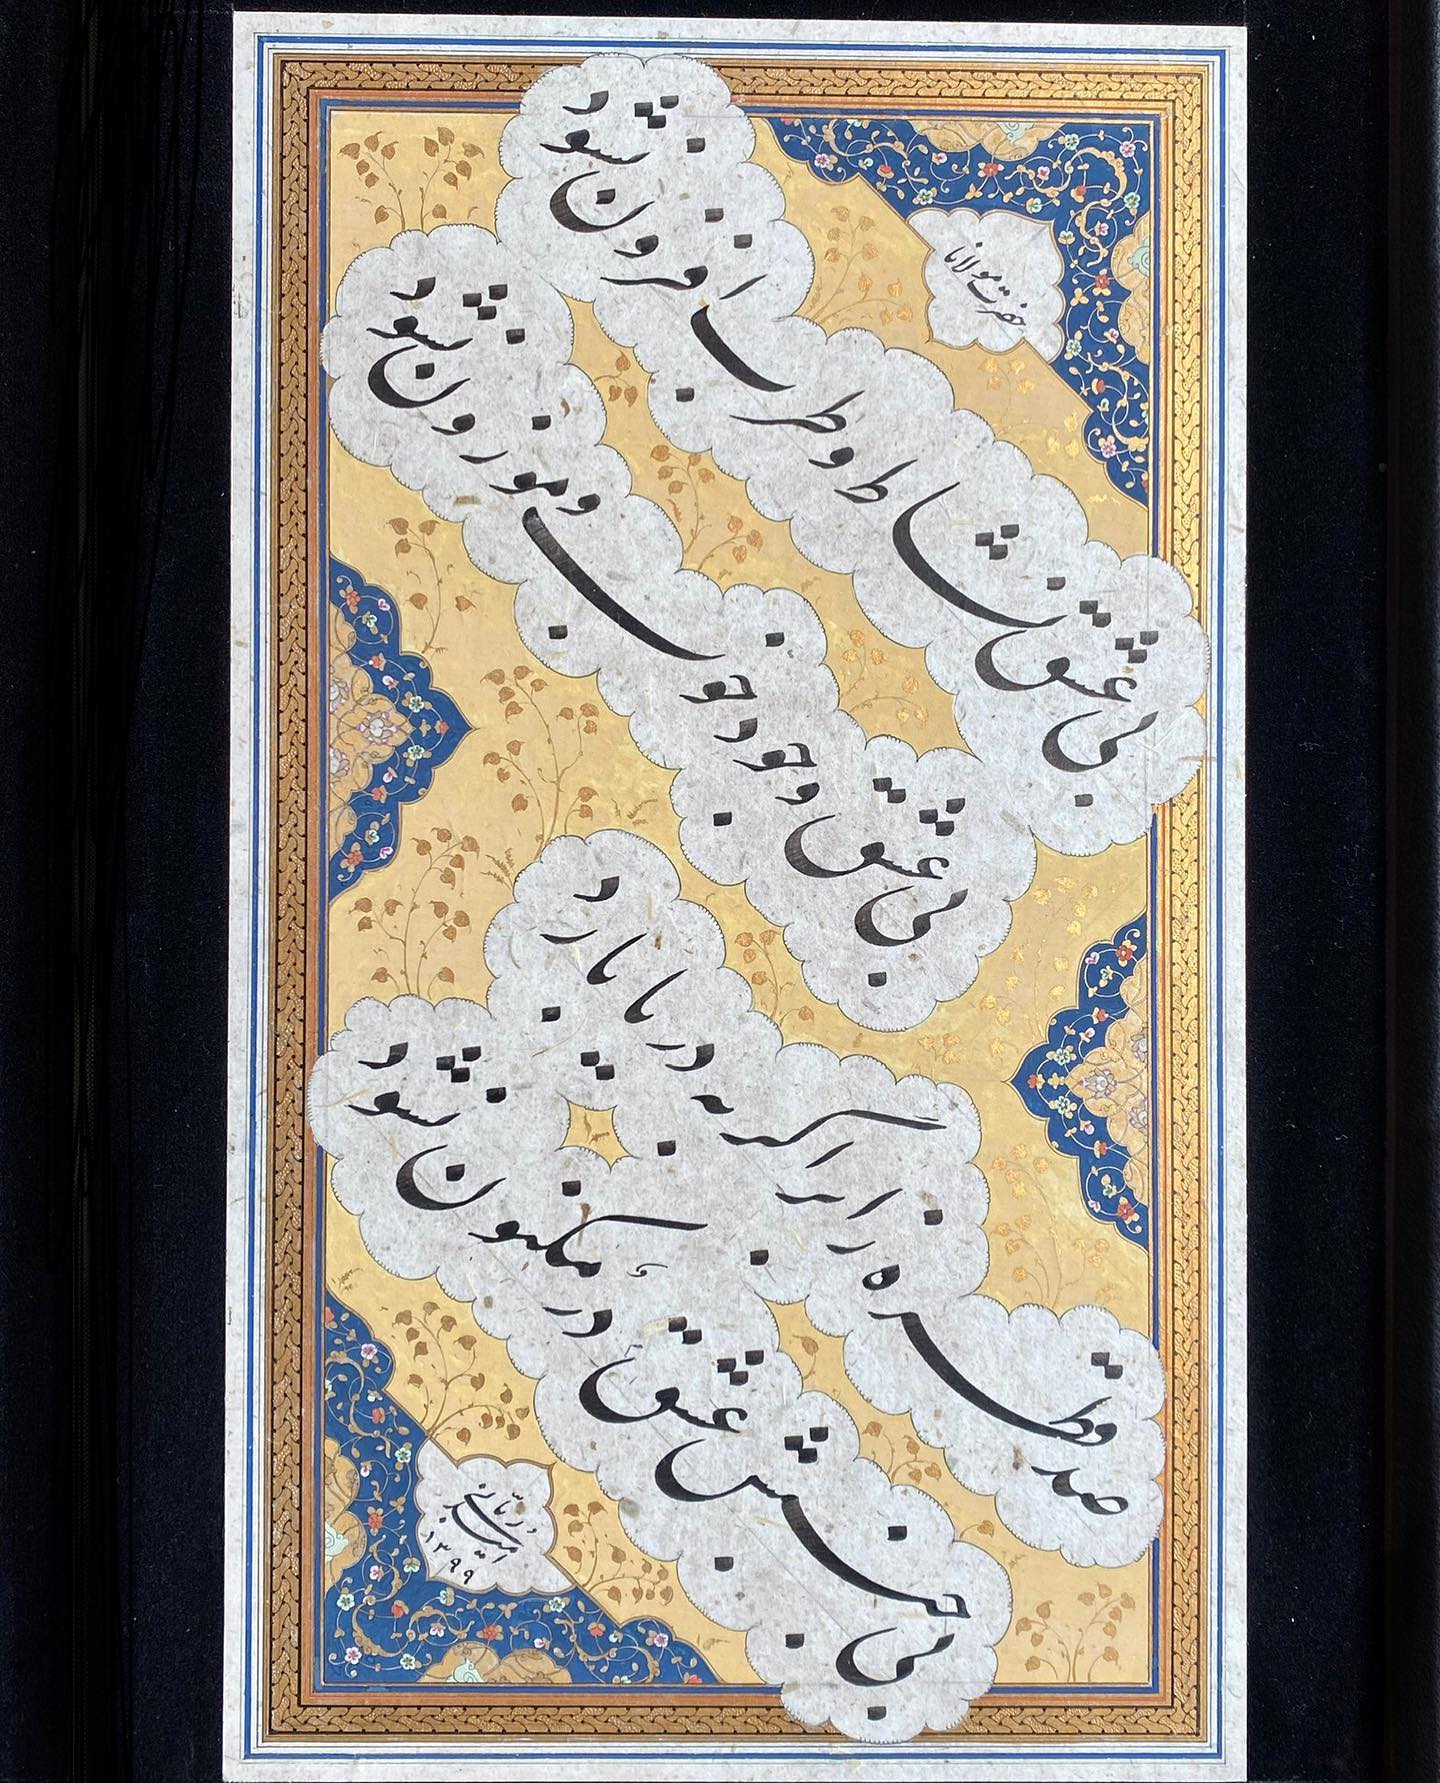 حضرت مولانا
بی عشق نشاط و طرب افزون نشود
بی عشق وجود خوب و موزون نشود
صد قطره ز ابر اگر به دریا بارد
بی جنبش عشق در مکنون نشود
امید ربانی
۱۳۹۹